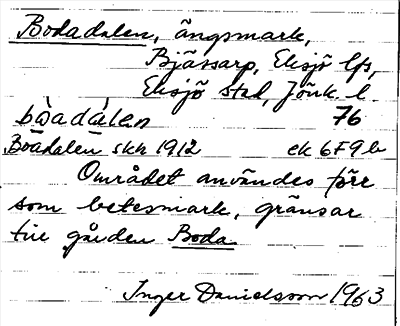 Bodadalen, ängsmark,
Bjässarp, Eksjö lfs,
Eksjö stad, Jönk. l.
bòadàlen 76
Boadalen skh 1912 ek 6F9b
Området användes förr
som betesmark, gränsar
till gården Boda.
Inger Danielsson 1963